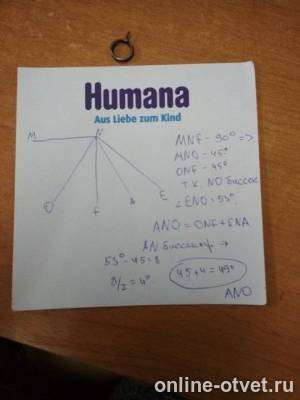 Humana
Aus Liebe zum Kind
M
N
O
F
A
E
MNF - 90° =>
MNO - 45°
ONF - 45°
т.к. NO биссек.
∠ENO = 53°
ANO = ONF + FNA
AN биссектр →
53° - 45 = 8
8/2 = 4°
45 + 4 = 49°
ANO
online-otvet.ru